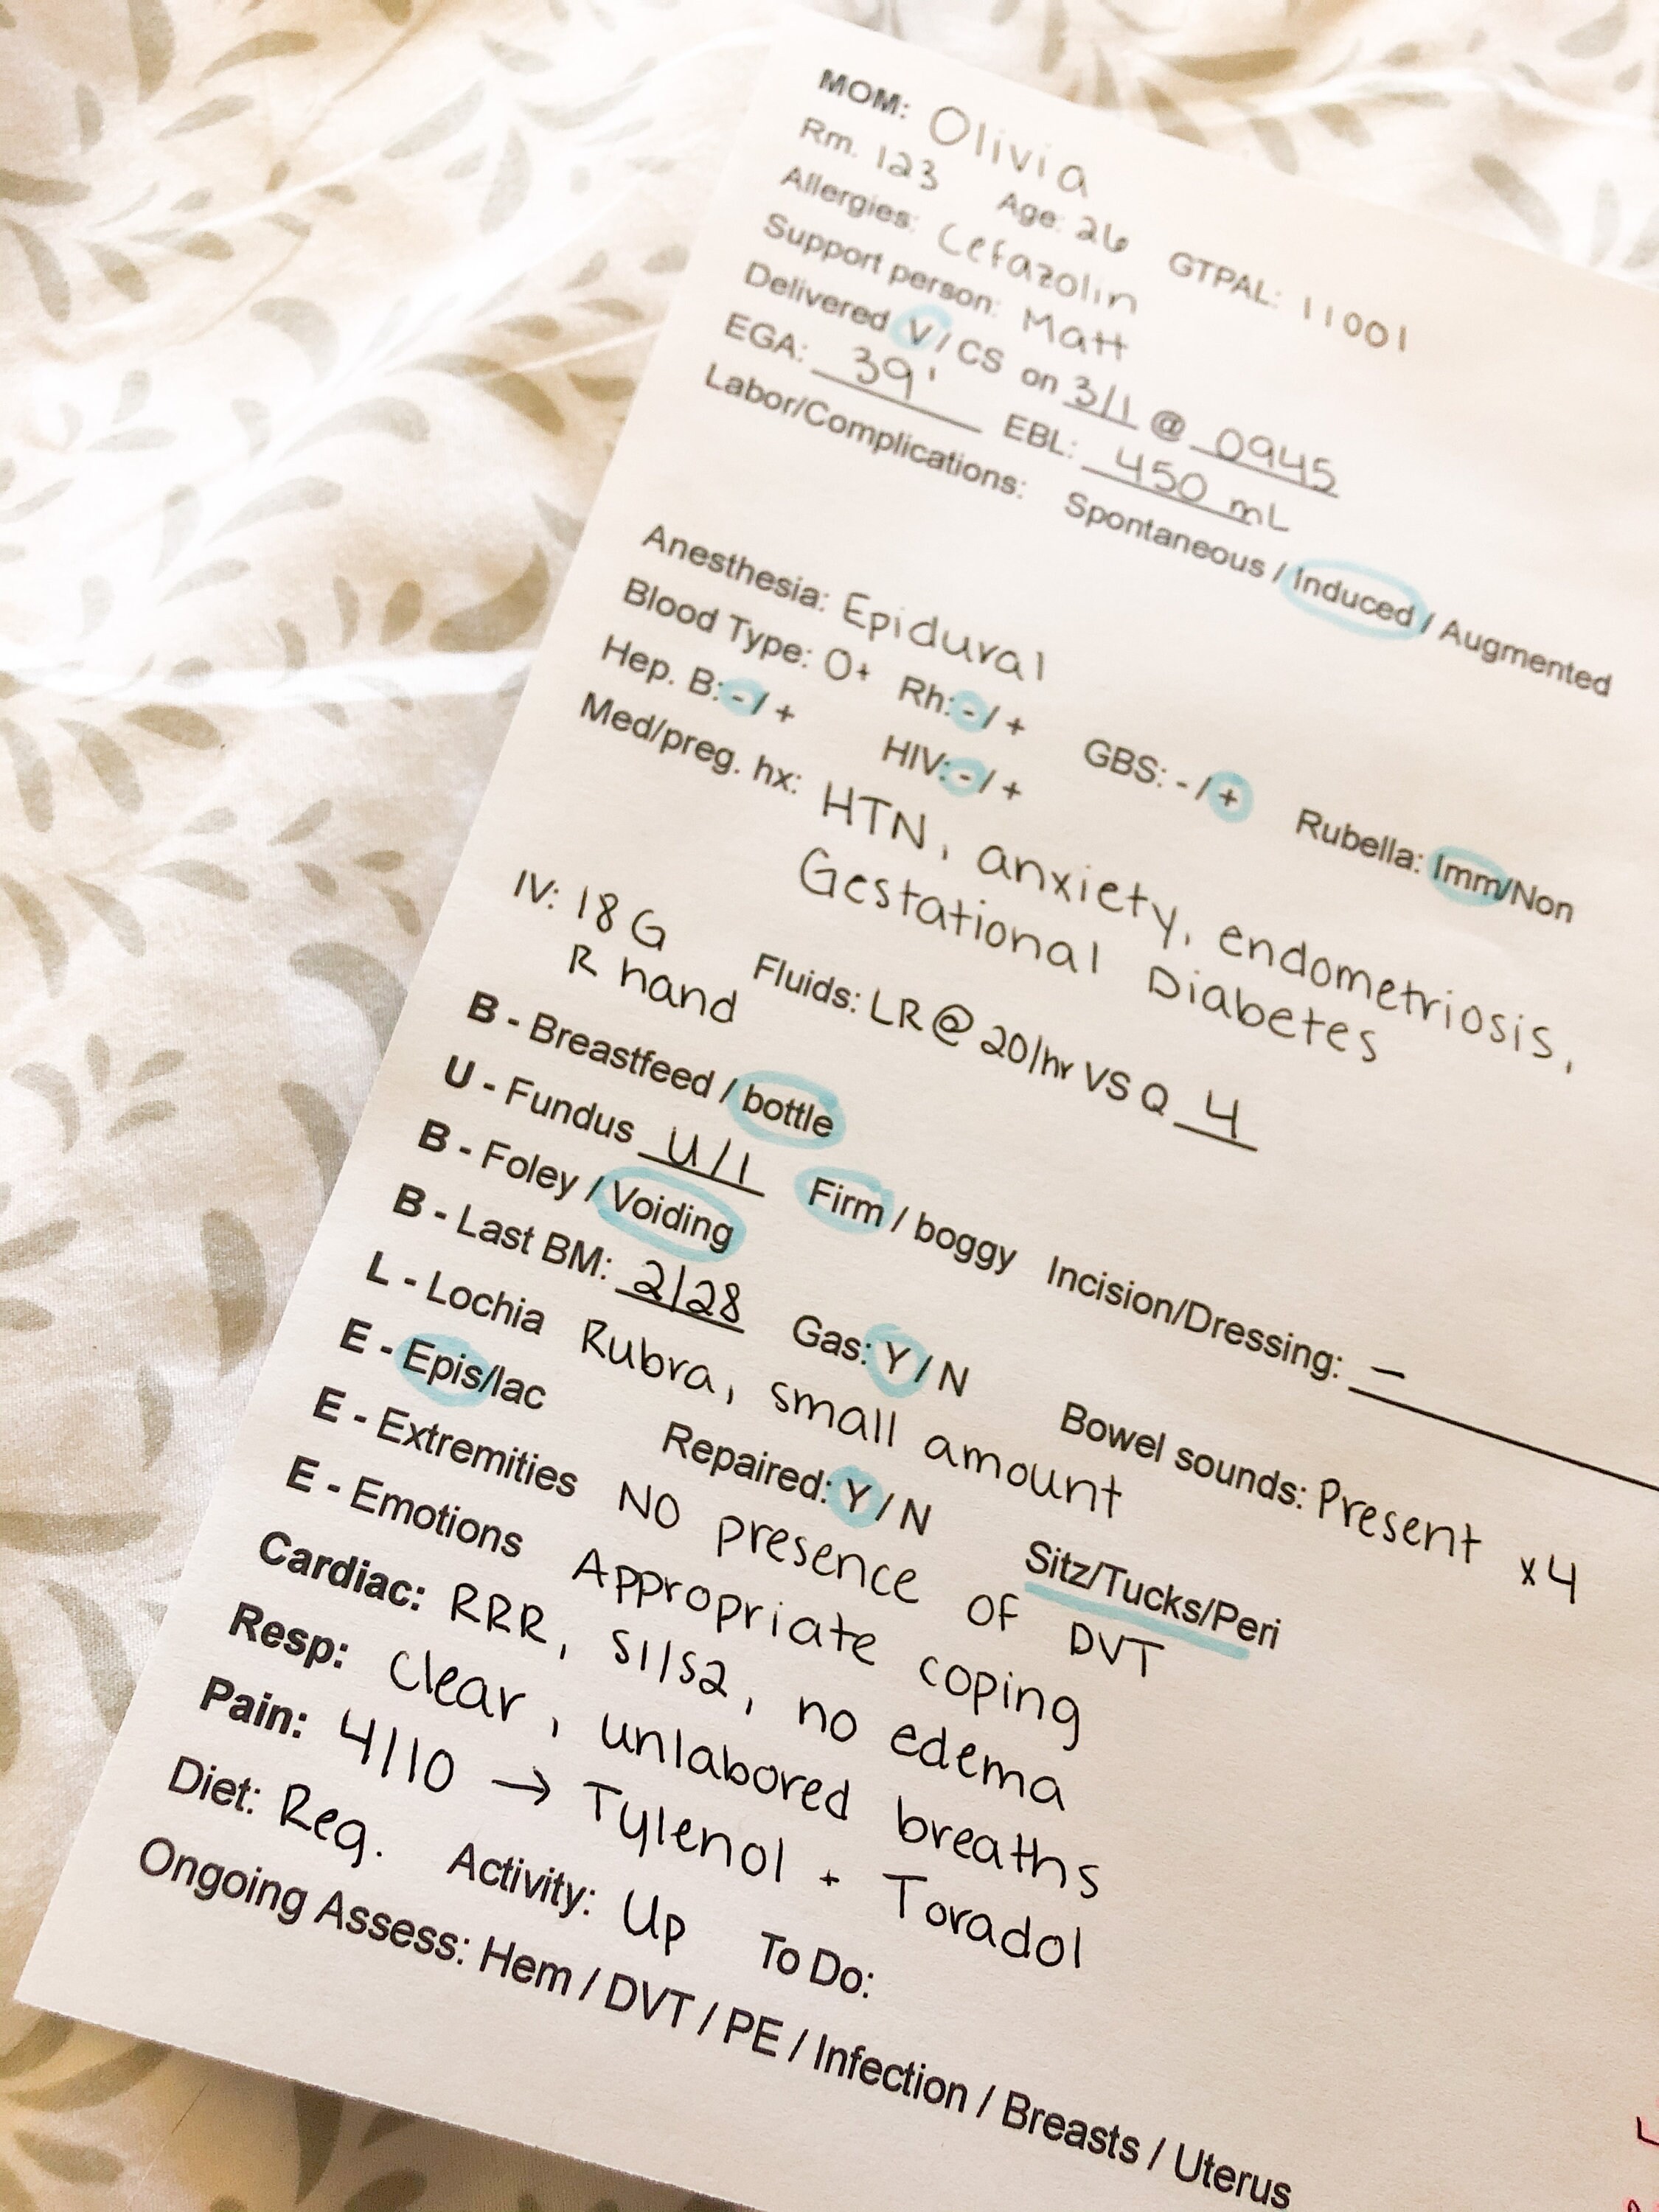 MOM: Olivia
Rm. 123 Age: 26 GTPAL: 11001
Allergies: Cefazolin
Support person: Matt
Delivered V / CS on 3/1 @ 0945
EGA: 39' EBL: 450 mL
Labor/Complications: Spontaneous / Induced / Augmented
Anesthesia: Epidural
Blood Type: O+ Rh: - / + GBS: - / + Rubella: Imm/Non
Hep. B: - / + HIV: - / +
Med/preg. hx: HTN, anxiety, endometriosis,
Gestational Diabetes
IV: 18 G Fluids: LR @ 20/hr VS Q 4
R hand
B - Breastfeed / bottle
U - Fundus U/1 Firm / boggy Incision/Dressing: –
B - Foley / Voiding
B - Last BM: 2/28 Gas: Y / N Bowel sounds: Present x4
L - Lochia Rubra, small amount
E - Epis/lac Repaired: Y / N Sitz/Tucks/Peri
E - Extremities NO presence of DVT
E - Emotions Appropriate coping
Cardiac: RRR, S1/S2, no edema
Resp: Clear, unlabored breaths
Pain: 4/10 → Tylenol + Toradol
Diet: Reg. Activity: Up To Do:
Ongoing Assess: Hem / DVT / PE / Infection / Breasts / Uterus